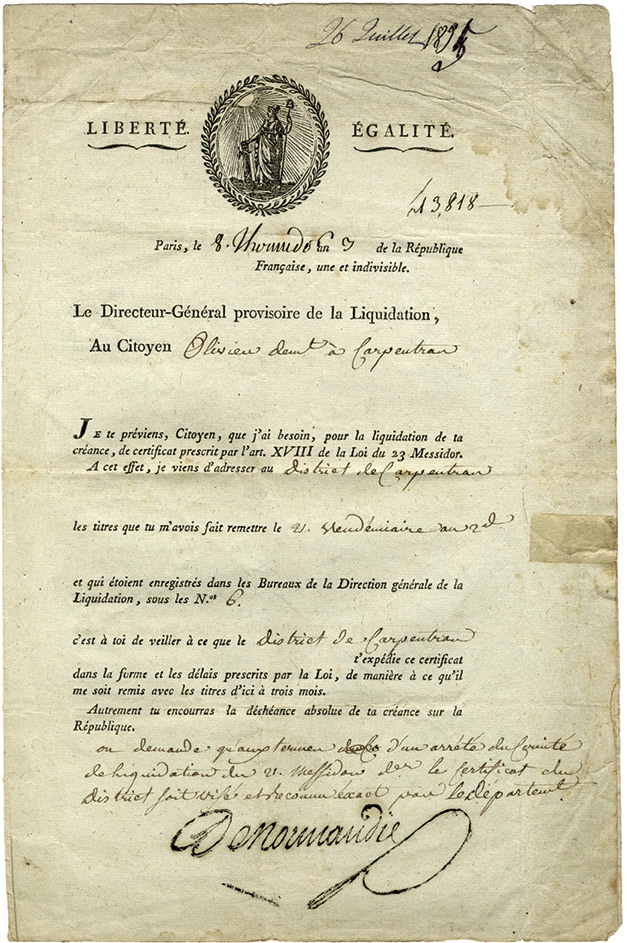 26 Juillet
LIBERTÉ. ÉGALITÉ.
43,818
Paris, le 8. an 3 de la République
Française, une et indivisible.
Le Directeur-Général provisoire de la Liquidation,
Au Citoyen Olivier demt à Carpentras
JE te préviens, Citoyen, que j'ai besoin, pour la liquidation de ta
créance, de certificat prescrit par l'art. XVIII de la Loi du 23 Messidor.
A cet effet, je viens d'adresser au District de Carpentras
les titres que tu m'avois fait remettre le 21 Vendémiaire an 2d
et qui étoient enregistrés dans les Bureaux de la Direction générale de la
Liquidation, sous les N.os 6.
c'est à toi de veiller à ce que le District de Carpentras
t'expédie ce certificat
dans la forme et les délais prescrits par la Loi, de manière à ce qu'il
me soit remis avec les titres d'ici à trois mois.
Autrement tu encourras la déchéance absolue de ta créance sur la
République.
on demande qu'aux termes d'un arrêté du Comité
de Liquidation du 21 Messidor der le Certificat du
District soit visé et reconnu exact par le Départemt.
Denormandie